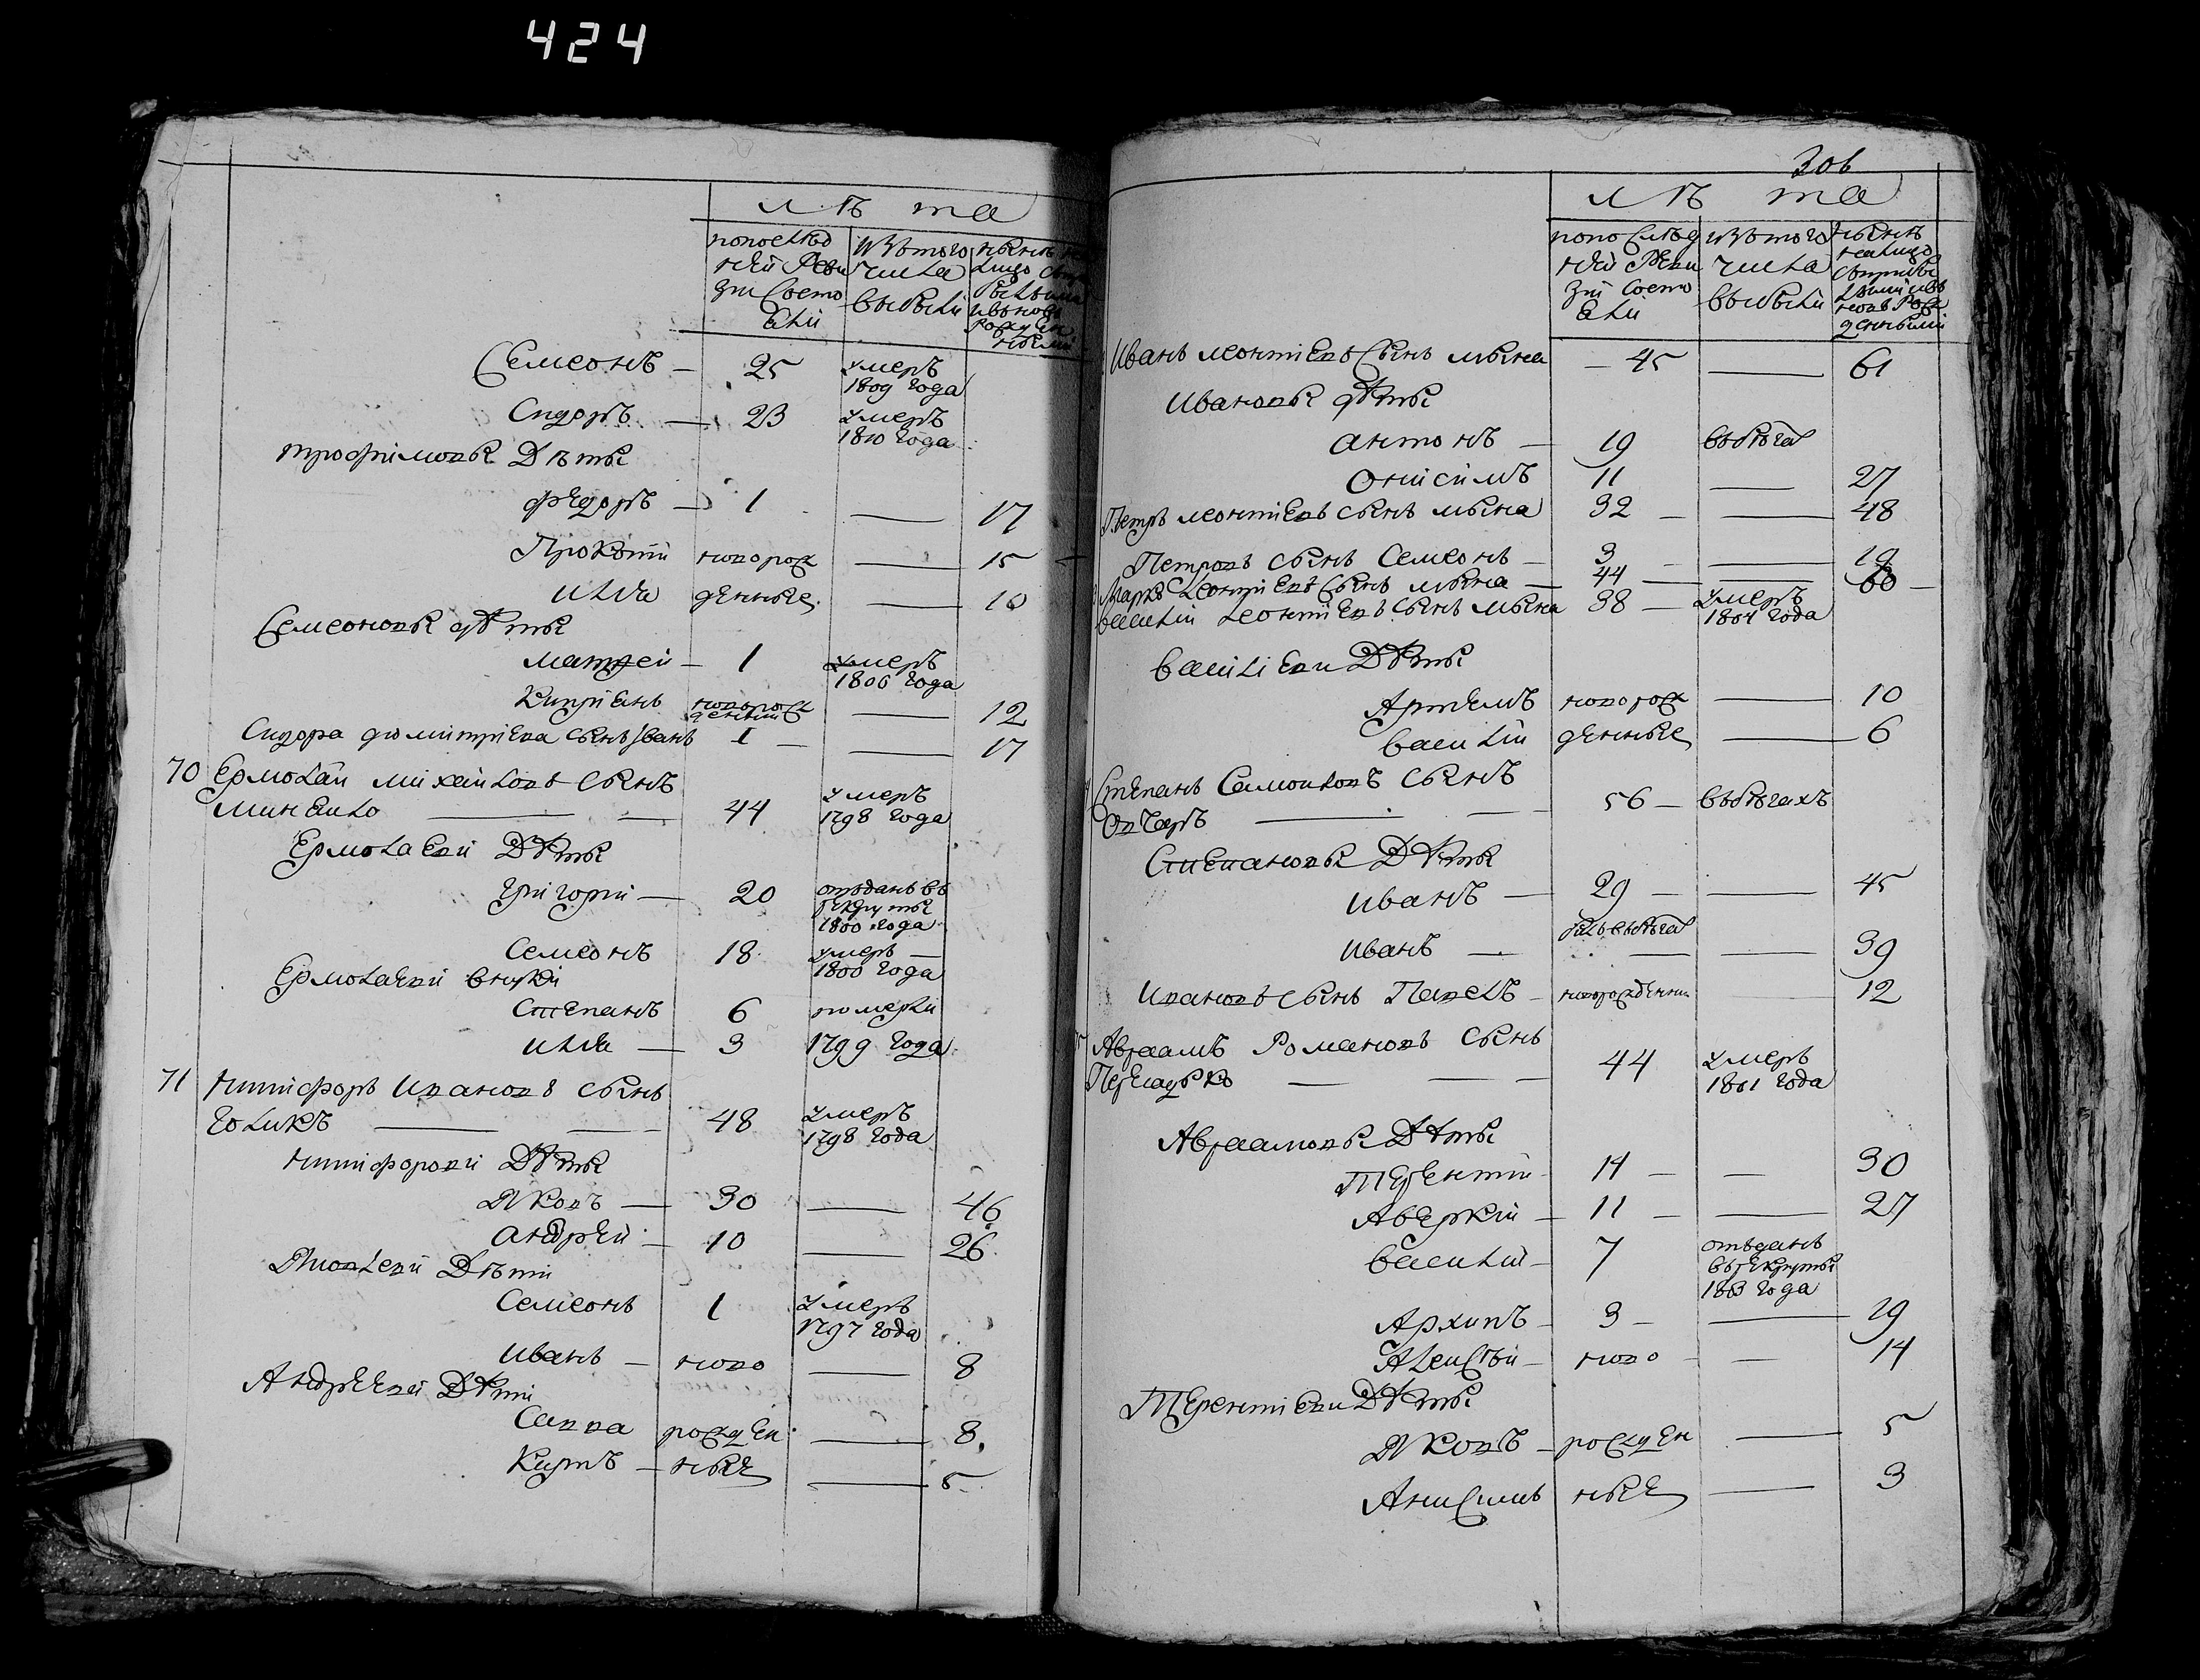 424
лѣта
по послѣд
ней Реви
зіи Состо
яли
изътого
числа
выбыли
нынѣ
Семеонъ — 25 умеръ
1809 года
Сидоръ — 23 умеръ
1810 года
трофимовы Дѣты
федоръ — 1 — 17
Прокопій новорож — 15
илія денные — 10
Семеоновы дѣты
матѳей — 1 умеръ
1806 года
Кипріянъ новорож
денный — 12
Сидора дюмитріева сынъ Іванъ 1 — 17
70 Ермолай михайловъ сынъ
миненко — 44 умеръ
1798 года
Ермолаеви Дѣты
григорій — 20 отъданъ въ
рекруты
1800 года
Семеонъ 18 умеръ
1800 года
Ермолаеви внуки
Степанъ 6 померли
илія — 3 1799 года
71 никифоръ Ивановъ сынъ
голикъ — 48 умеръ
1798 года
никифорови Дѣты
Яковъ — 30 — 46
андрей — 10 — 26
Яковлеви Дѣти
Семеонъ 1 умеръ
1797 года
иванъ — ново — 8
Андрееви Дѣти
Савва рожден — 8
Кирилъ — ные — 5
306
лѣта
по послѣд
ней Реви
зіи Состо
яли
изътого
числа
выбыли
нынѣ
налицо
Иванъ леонтіевъ сынъ мына — 45 — 61
Ивановы дѣты
антонъ — 19 въбѣгах
Онисимъ 11 — 27
Петръ леонтіевъ сынъ мына 32 — 48
Петровъ сынъ Семеонъ — 3 — 19
Марко Леонтіевъ Сынъ мына — 44 — 60
василій Леонтіевъ Сынъ мына 38 — умеръ
1804 года
василіеви Дѣты
Артемъ новорож — 10
василій денные — 6
Степанъ Самойловъ Сынъ
Овчаръ — 56 — въбѣгахъ
Степановы Дѣты
иванъ — 29 — 45
иванъ — — 39
Ивановъ сынъ Павелъ — новорожденний — 12
Авраамъ Романовъ Сынъ
— 44 умеръ
1801 года
Авраамовы Дѣты
Терентій 14 — 30
Аверкій — 11 — 27
василій — 7 отъданъ
въ рекруты
Архипъ — 3 — 19
Алексѣй — ново — 14
Терентіеви Дѣты
Яковъ — рожден — 5
Анисимъ ные — 3